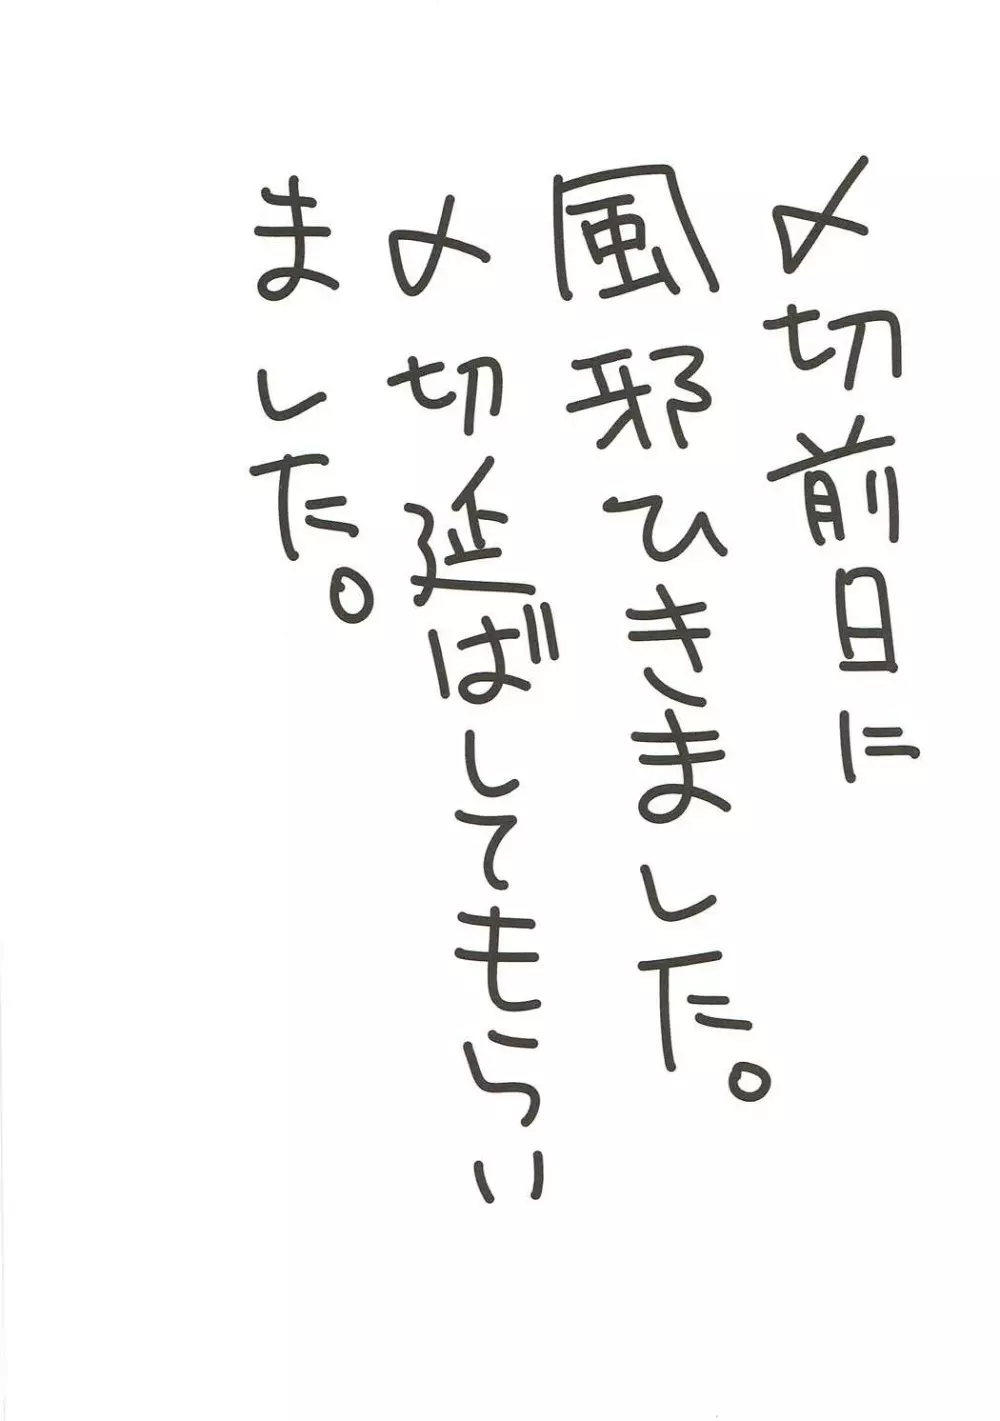 〆切前日に
風邪ひきました。
〆切延ばしてもらい
ました。